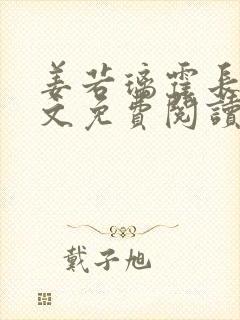 姜若璃霆長
文免費閱讀
戴子旭